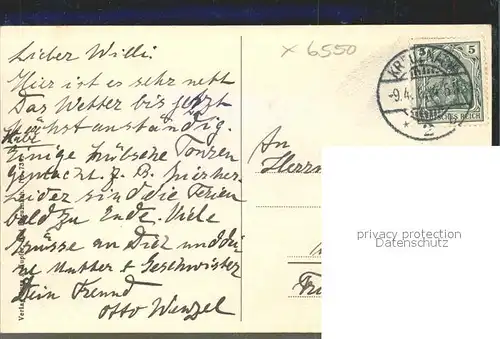 Lieber Willi.
Hier ist es sehr nett
Das Wetter bis jetzt
höchst anständig.
Habe
Einige hübsche Touren
gemacht z. B. hierher.
Leider sind die Ferien
bald zu Ende. Viele
Grüsse an Dich und dei
ne Mutter + Geschwister
Dein Freund
Otto Wenzel
x 6550
5
-9.4.
An
Herrn
privacy protection
Datenschutz